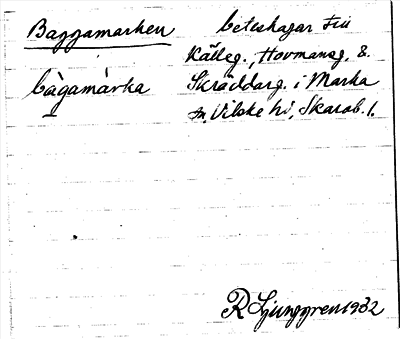 Baggamarken
bàgamàrka
beteshagar till
Källeg., Hovmansg. &
Skräddarg. i Marka
sn, Vilske hd, Skarab. l.
R Ljunggren 1932